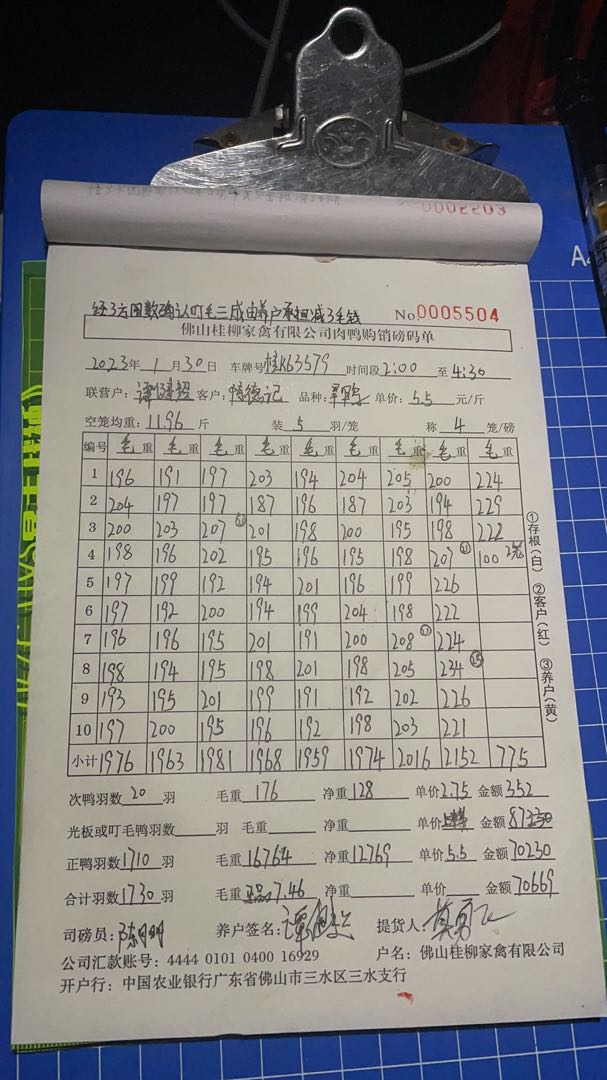 0002203
No.0005504
佛山桂柳家禽有限公司肉鸭购销磅码单
2023年 1 月 30 日 车牌号 桂K63579 时间段 2:00 至 4:30
联营户: 谭健超 客户: 德记 品种: 单价: 5.5 元/斤
空笼均重: 11.96 斤 装 5 羽/笼 称 4 笼/磅
编号 毛重 毛重 毛重 毛重 毛重 毛重 毛重 毛重 毛重
1 196 191 197 203 194 204 205 200 224
2 204 197 197 187 196 187 203 194 229
3 200 203 207 201 198 200 195 198 222
4 198 196 202 195 196 195 198 207 100
5 197 199 192 194 201 196 199 226
6 197 192 200 194 199 204 198 222
7 196 196 195 201 191 200 208 224
8 198 194 195 198 201 198 205 234 ⑮
9 193 195 201 199 191 192 202 226
10 197 200 195 196 192 198 203 221
小计 1976 1963 1981 1968 1959 1974 2016 2152 775
①存根(白) ②客户(红) ③养户(黄)
次鸭羽数 20 羽 毛重 176 净重 128 单价 2.75 金额 352
光板或叮毛鸭羽数 羽 毛重 净重 单价 金额
正鸭羽数 1710 羽 毛重 16764 净重 12769 单价 5.5 金额 70230
合计羽数 1730 羽 毛重 7.46 净重 单价 金额 70669
司磅员: 养户签名: 提货人:
公司汇款账号: 4444 0101 0400 16929 户名: 佛山桂柳家禽有限公司
开户行: 中国农业银行广东省佛山市三水区三水支行
A4